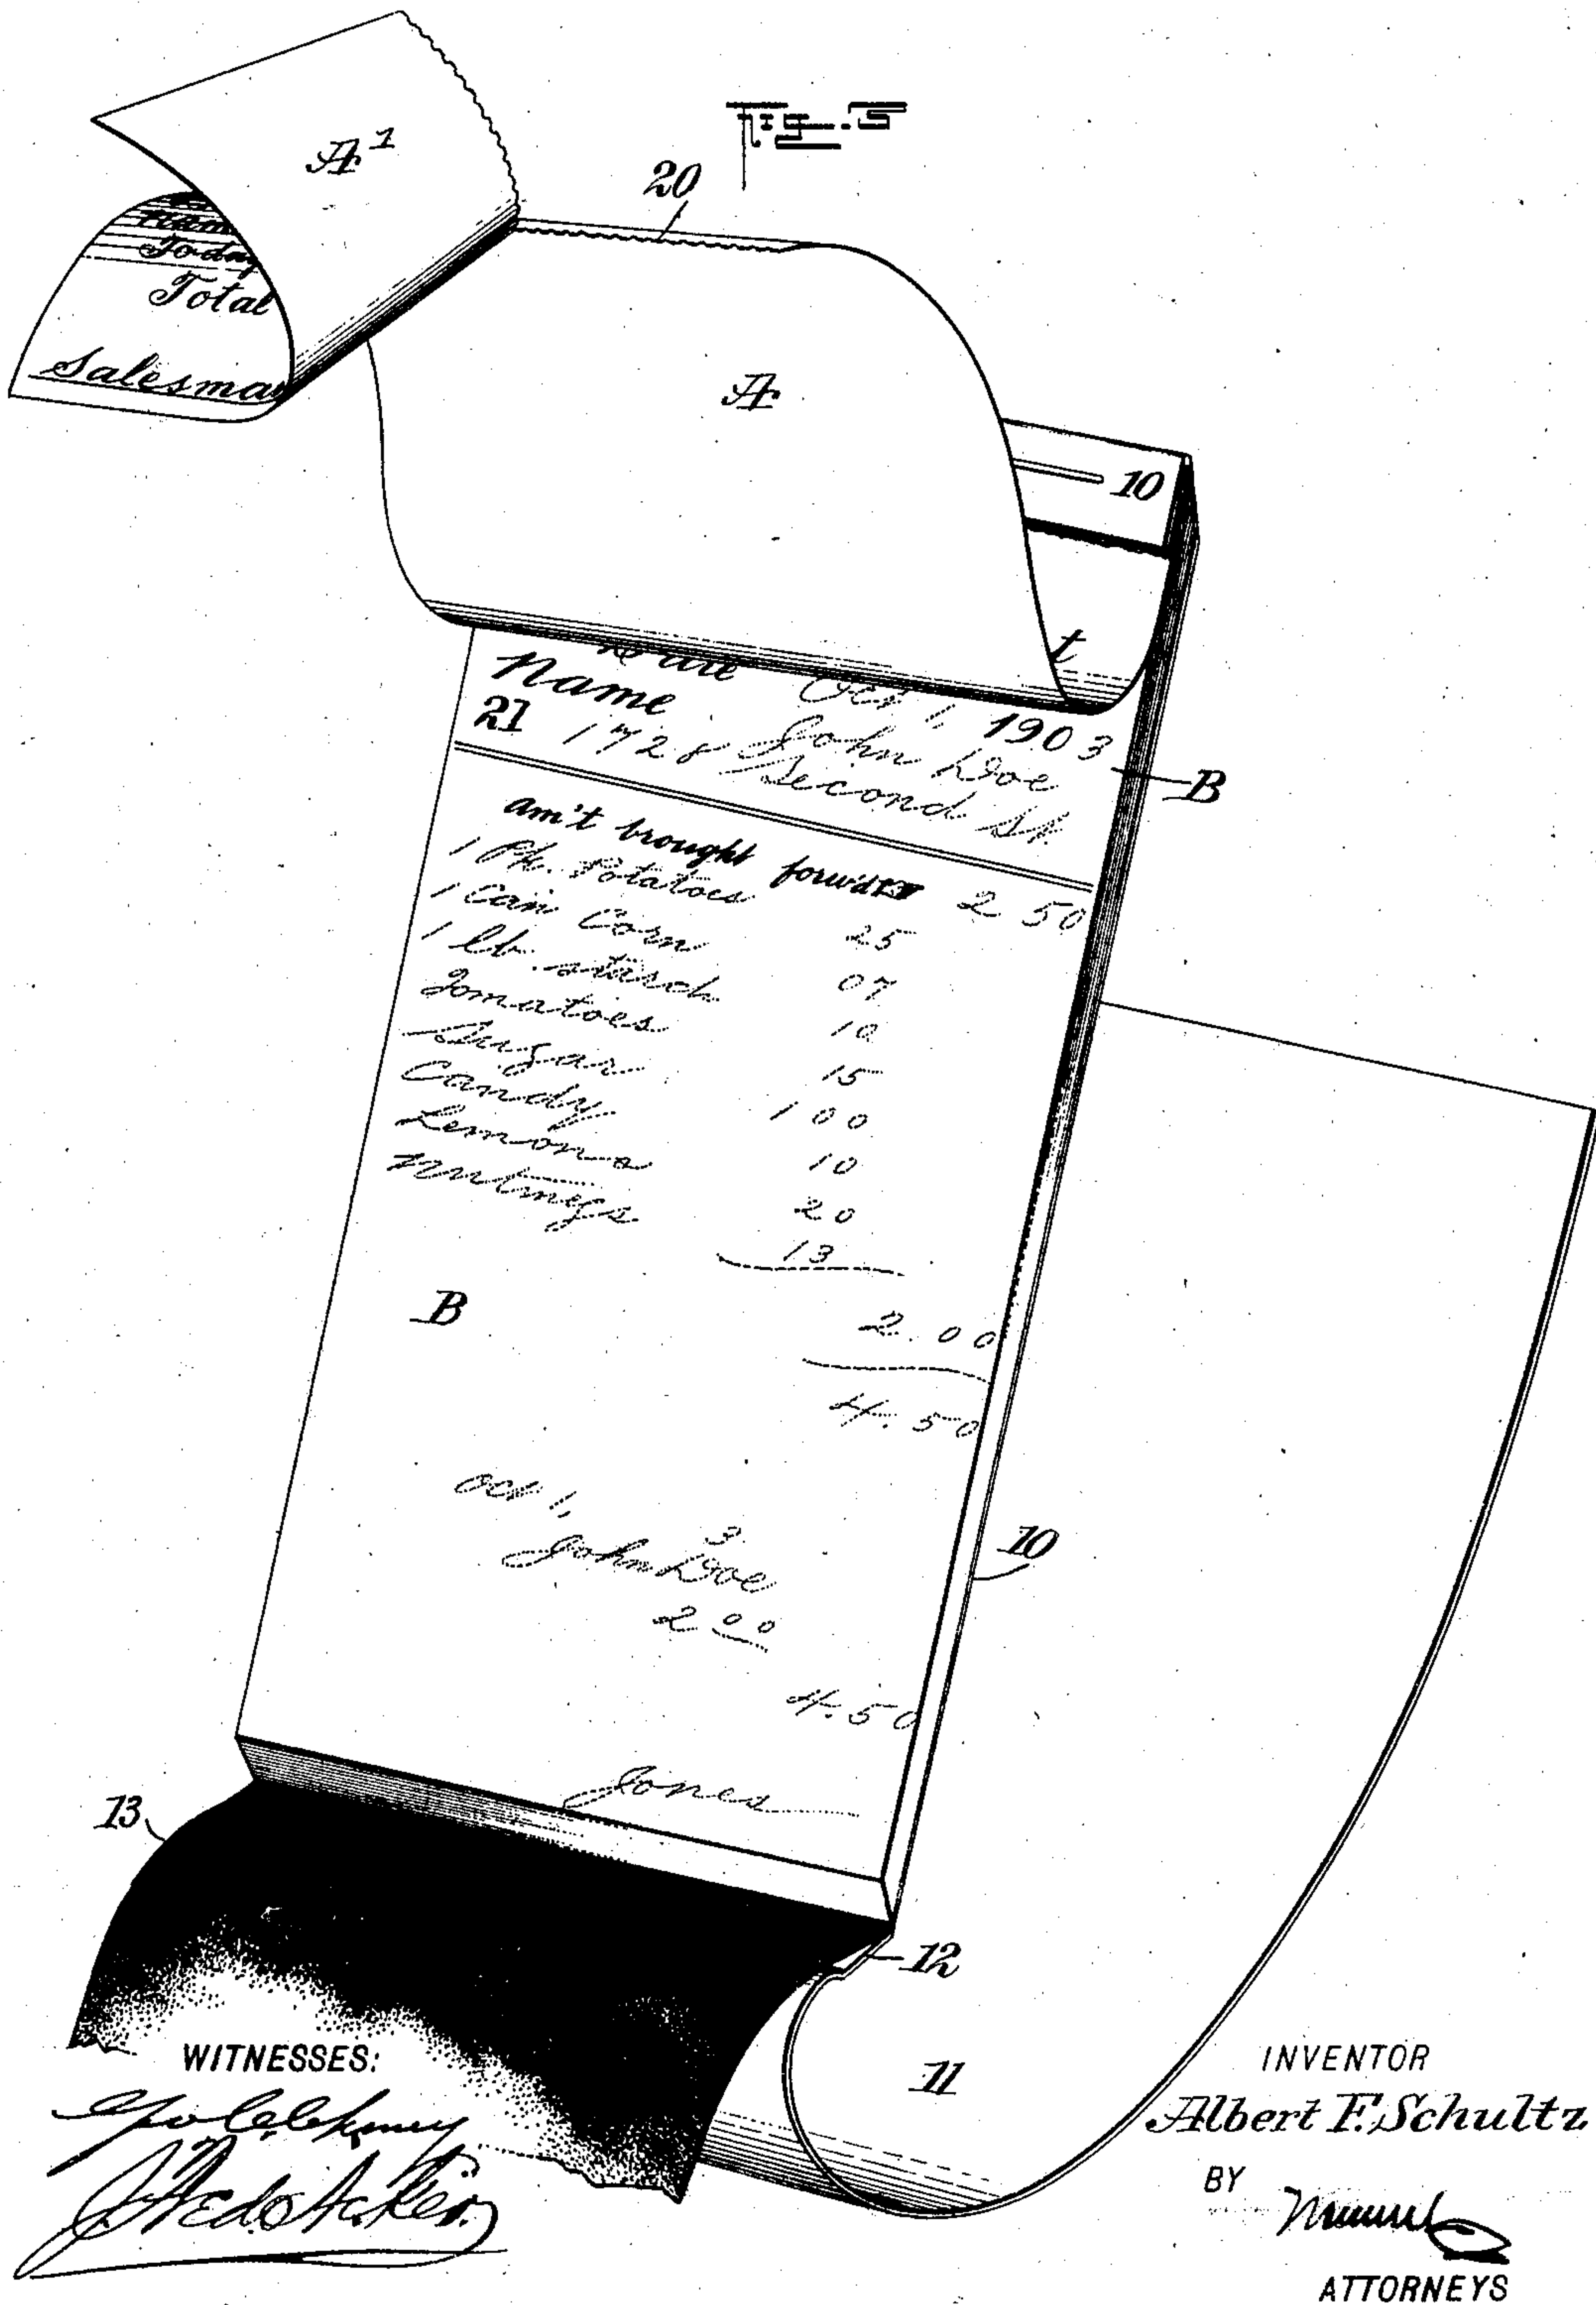 Fig. 5
A1
20
Today
Total
Salesma
A
10
t
Name Oct 1, 1903
21 John Doe
1728 Second St.
B
am't brought forw'd 2 50
1 Pk. Potatoes 25
1 Can Corn 07
1 lb. starch 10
Tomatoes 15
Sugar 1 00
Candy 10
Lemons 20
Nutmegs 13
B
2.00
4.50
Oct 1, 3
10
John Doe
2 00
4.50
Jones
13
12
11
WITNESSES:
INVENTOR
Albert F. Schultz
BY
ATTORNEYS